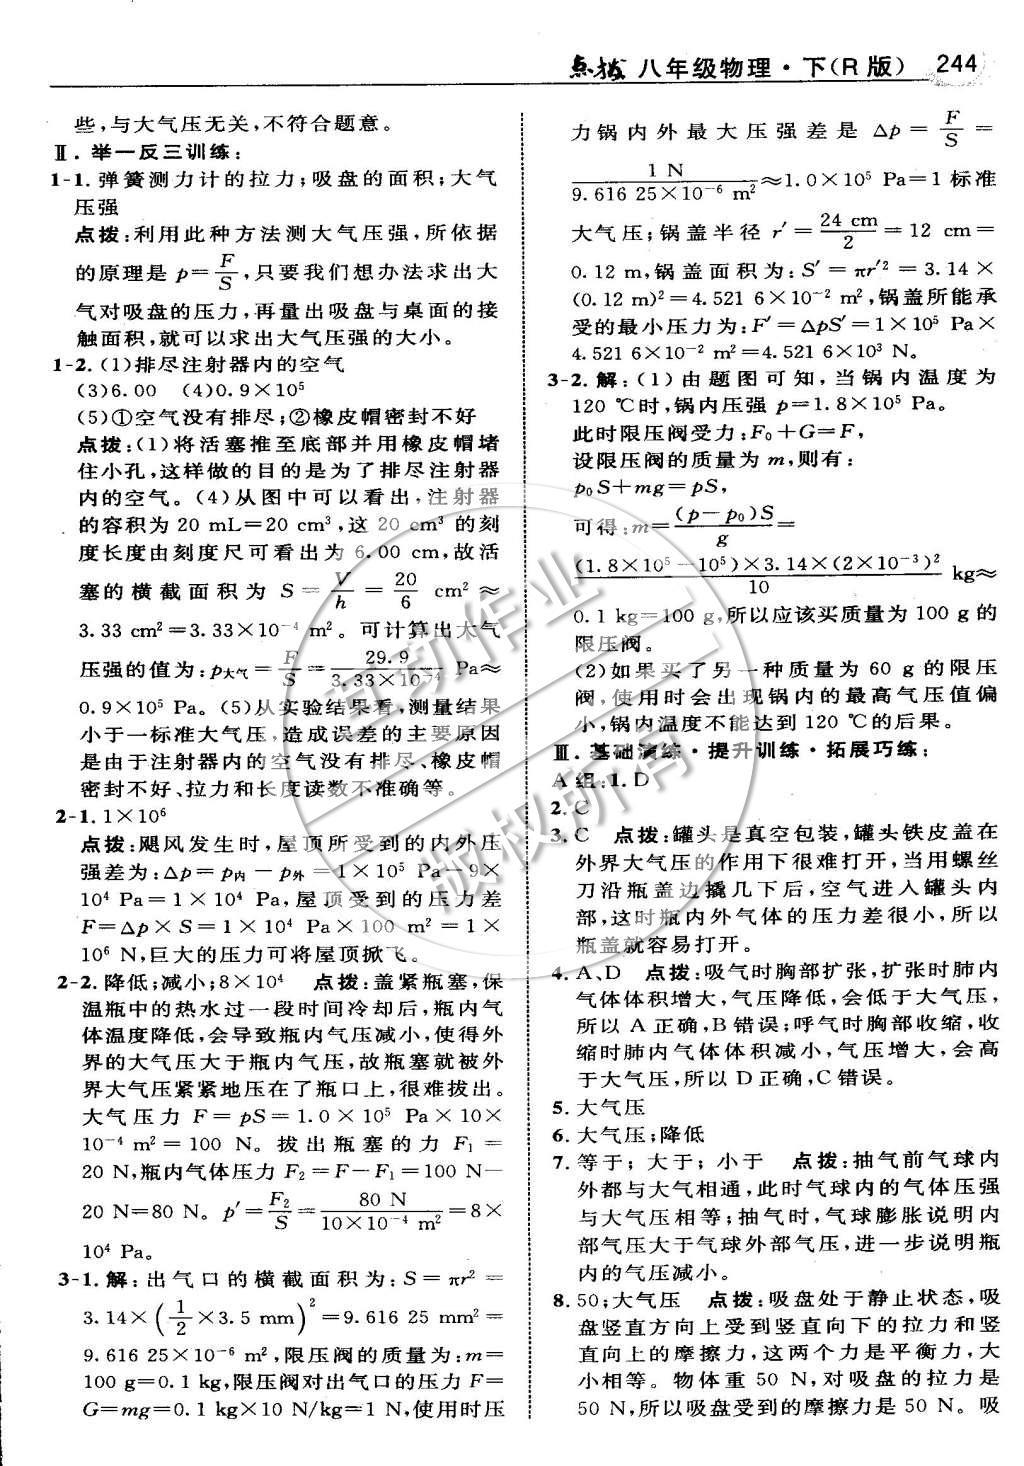 点拨 八年级物理·下(R版) 244
些,与大气压无关,不符合题意。
Ⅱ. 举一反三训练:
1-1. 弹簧测力计的拉力;吸盘的面积;大气
压强
点拨:利用此种方法测大气压强,所依据
的原理是 p=F/S,只要我们想办法求出大
气对吸盘的压力,再量出吸盘与桌面的接
触面积,就可以求出大气压强的大小。
1-2. (1)排尽注射器内的空气
(3)6.00 (4)0.9×10⁵
(5)①空气没有排尽;②橡皮帽密封不好
点拨:(1)将活塞推至底部并用橡皮帽堵
住小孔,这样做的目的是为了排尽注射器
内的空气。(4)从图中可以看出,注射器
的容积为 20 mL=20 cm³,这 20 cm³ 的刻
度长度由刻度尺可看出为 6.00 cm,故活
塞的横截面积为 S=V/h=20/6 cm²≈
3.33 cm²=3.33×10⁻⁴ m²。可计算出大气
压强的值为:p大气=F/S=29.9/(3.33×10⁻⁴) Pa≈
0.9×10⁵ Pa。(5)从实验结果看,测量结果
小于一标准大气压,造成误差的主要原因
是由于注射器内的空气没有排尽、橡皮帽
密封不好、拉力和长度读数不准确等。
2-1. 1×10⁶
点拨:飓风发生时,屋顶所受到的内外压
强差为:Δp=p内-p外=1×10⁵ Pa-9×
10⁴ Pa=1×10⁴ Pa,屋顶受到的压力差
F=Δp×S=1×10⁴ Pa×100 m²=1×
10⁶ N,巨大的压力可将屋顶掀飞。
2-2. 降低;减小;8×10⁴ 点拨:盖紧瓶塞,保
温瓶中的热水过一段时间冷却后,瓶内气
体温度降低,会导致瓶内气压减小,使得外
界的大气压大于瓶内气压,故瓶塞就被外
界大气压紧紧地压在了瓶口上,很难拔出。
大气压力 F=pS=1.0×10⁵ Pa×10×
10⁻⁴ m²=100 N。拔出瓶塞的力 F₁=
20 N,瓶内气体压力 F₂=F-F₁=100 N-
20 N=80 N。p′=F₂/S=80 N/(10×10⁻⁴ m²)=8×
10⁴ Pa。
3-1. 解:出气口的横截面积为:S=πr²=
3.14×(1/2×3.5 mm)²=9.616 25 mm²=
9.616 25×10⁻⁶ m²,限压阀的质量为:m=
100 g=0.1 kg,限压阀对出气口的压力 F=
G=mg=0.1 kg×10 N/kg=1 N,使用时压
力锅内外最大压强差是 Δp=F/S=
1 N/(9.616 25×10⁻⁶ m²)≈1.0×10⁵ Pa=1 标准
大气压;锅盖半径 r′=24 cm/2=12 cm=
0.12 m,锅盖面积为:S′=πr′²=3.14×
(0.12 m)²=4.521 6×10⁻² m²,锅盖所能承
受的最小压力为:F′=ΔpS′=1×10⁵ Pa×
4.521 6×10⁻² m²=4.521 6×10³ N。
3-2. 解:(1)由题图可知,当锅内温度为
120 ℃时,锅内压强 p=1.8×10⁵ Pa。
此时限压阀受力:F₀+G=F,
设限压阀的质量为 m,则有:
p₀S+mg=pS,
可得:m=(p-p₀)S/g=
(1.8×10⁵-10⁵)×3.14×(2×10⁻³)²/10 kg≈
0.1 kg=100 g,所以应该买质量为 100 g 的
限压阀。
(2)如果买了另一种质量为 60 g 的限压
阀,使用时会出现锅内的最高气压值偏
小,锅内温度不能达到 120 ℃的后果。
Ⅲ. 基础演练·提升训练·拓展巧练:
A 组:1. D
2. C
3. C 点拨:罐头是真空包装,罐头铁皮盖在
外界大气压的作用下很难打开,当用螺丝
刀沿瓶盖边撬几下后,空气进入罐头内
部,这时瓶内外气体的压力差很小,所以
瓶盖就容易打开。
4. A、D 点拨:吸气时胸部扩张,扩张时肺内
气体体积增大,气压降低,会低于大气压,
所以 A 正确,B 错误;呼气时胸部收缩,收
缩时肺内气体体积减小,气压增大,会高
于大气压,所以 D 正确,C 错误。
5. 大气压
6. 大气压;降低
7. 等于;大于;小于 点拨:抽气前气球内
外都与大气相通,此时气球的气体压强
与大气压相等;抽气时,气球膨胀说明内
部气压大于气球外部气压,进一步说明瓶
内的气压减小。
8. 50;大气压 点拨:吸盘处于静止状态,吸
盘竖直方向上受到竖直向下的拉力和竖
直向上的摩擦力,这两个力是平衡力,大
小相等。物体重 50 N,对吸盘的拉力是
50 N,所以吸盘受到的摩擦力是 50 N。吸
互动作业
版权所有